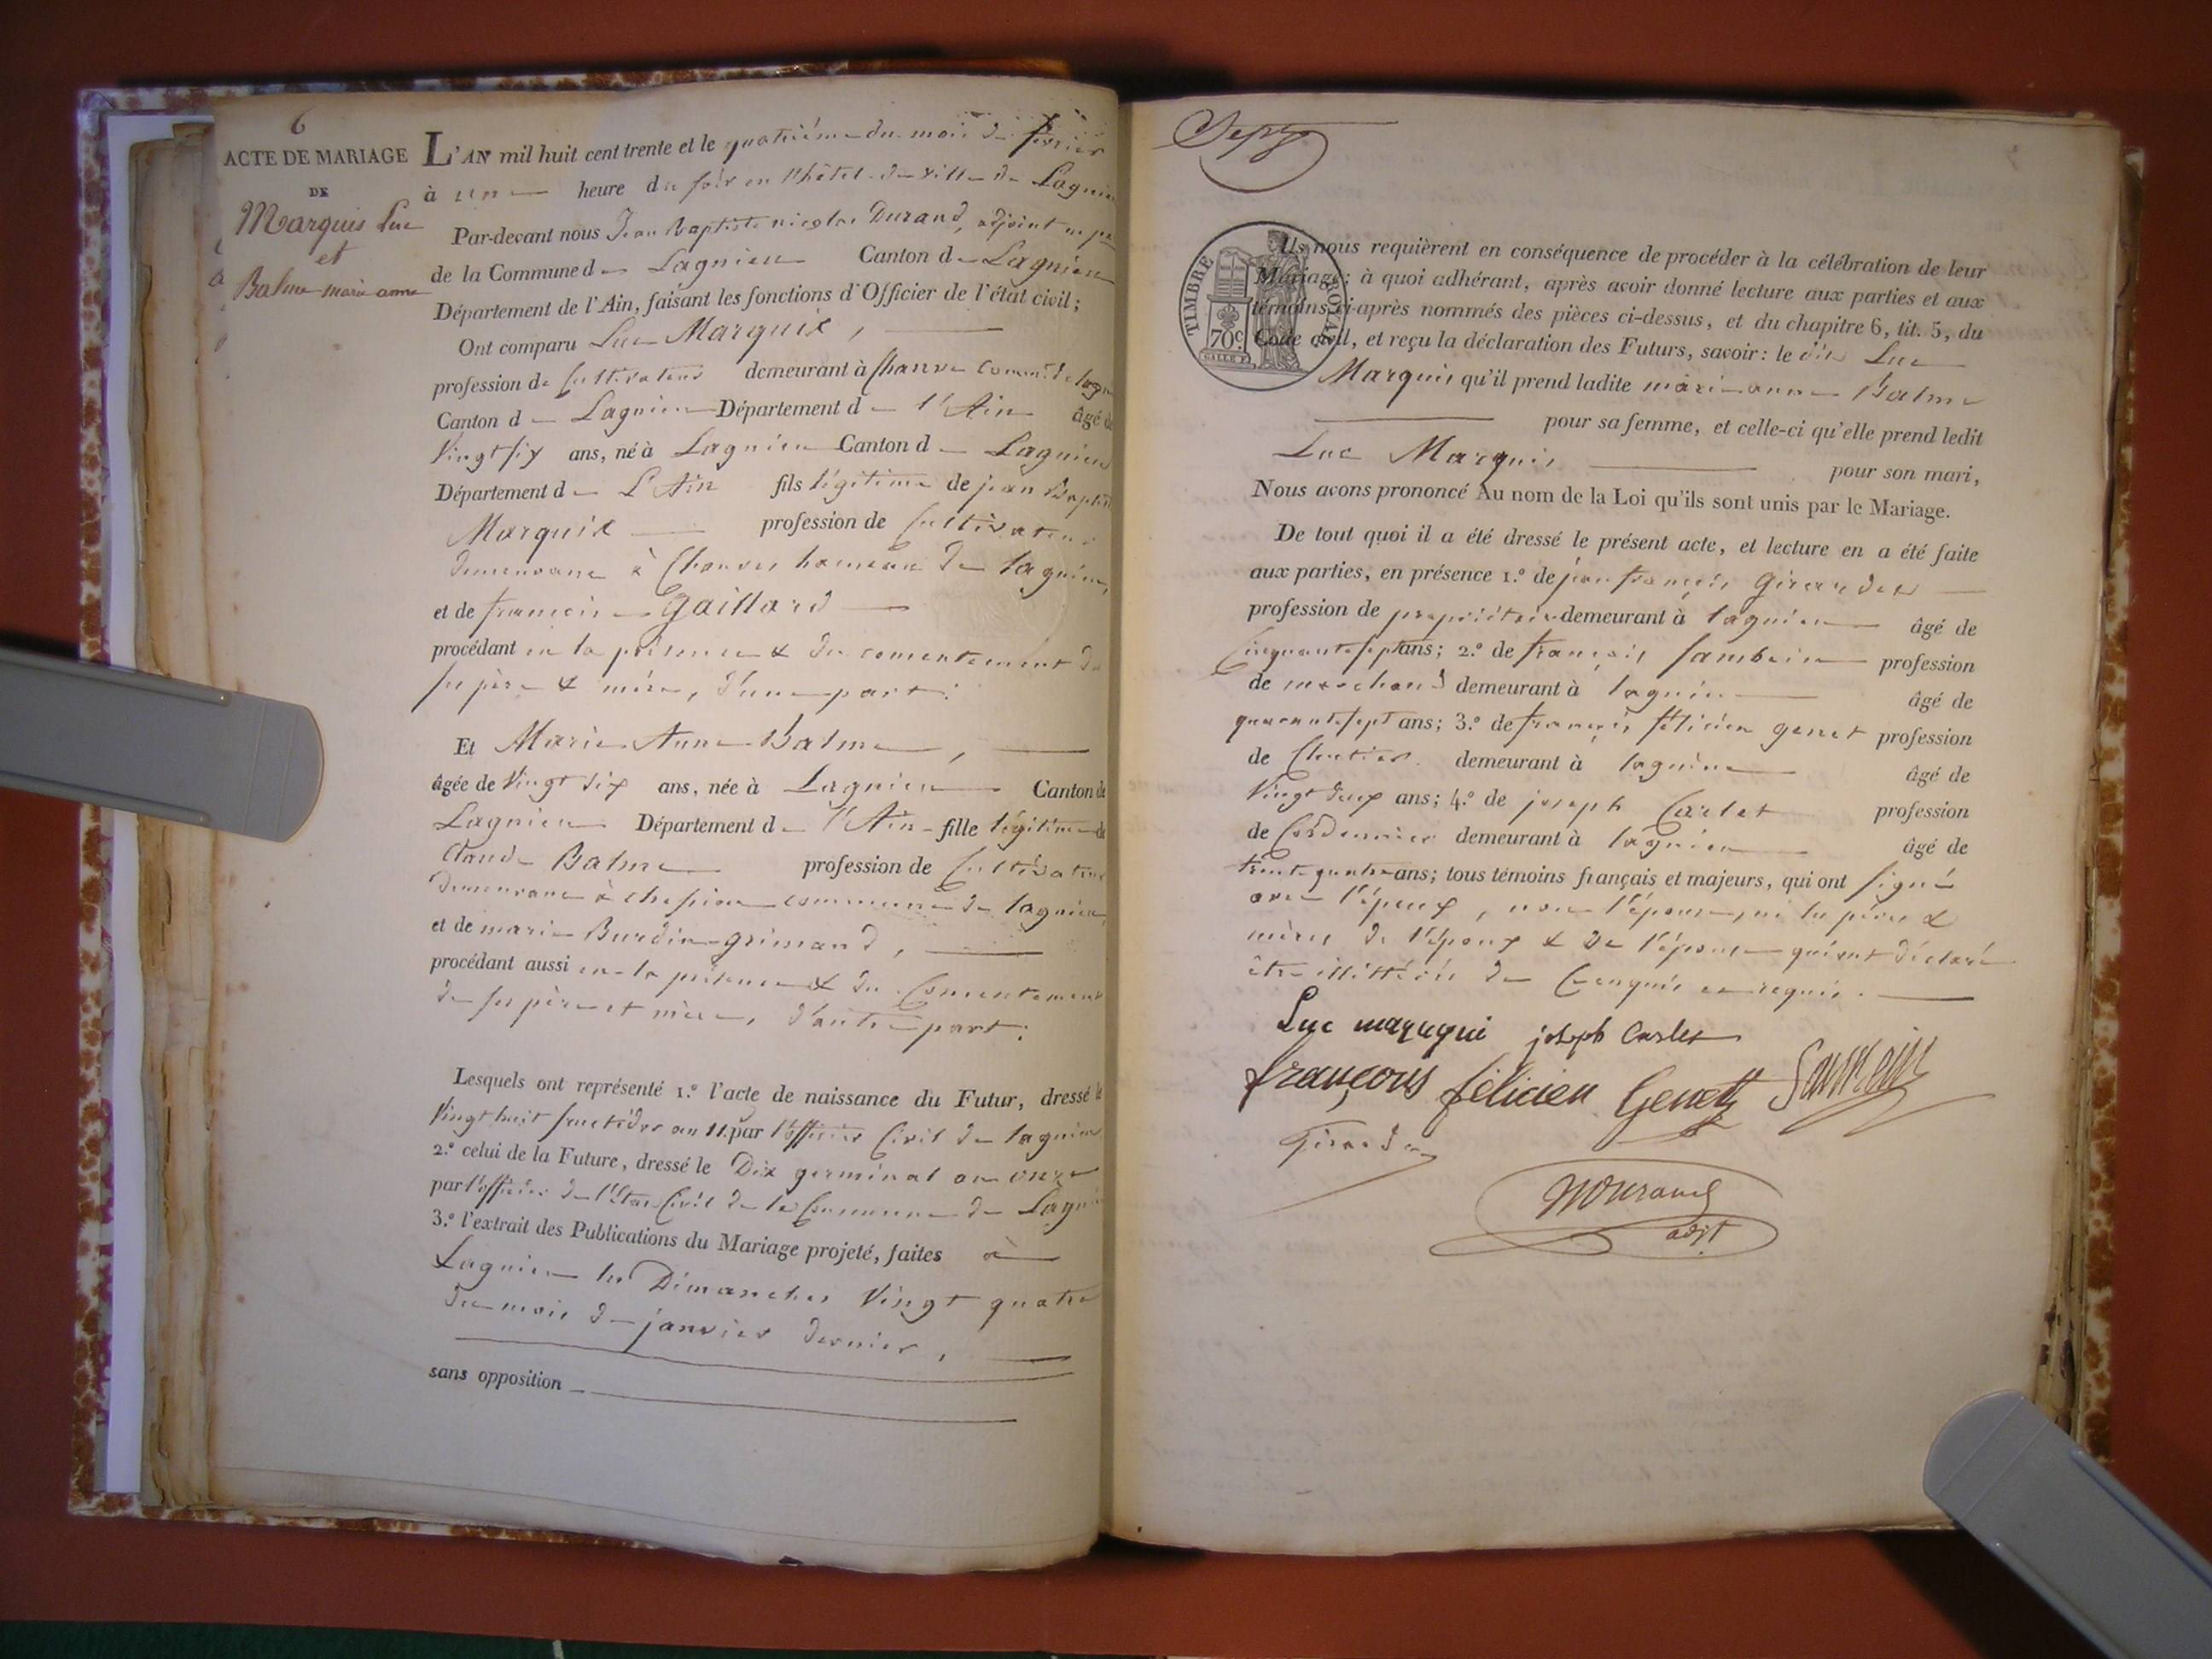 6
ACTE DE MARIAGE
DE
Marquis Luc
et
Balme marie anne
L'AN mil huit cent trente et le quatrième du mois de février
à une heure du soir en l'hôtel de ville de Lagnieu
Par-devant nous Jean Baptiste nicolas Durand, adjoint
de la Commune de Lagnieu Canton de Lagnieu
Département de l'Ain, faisant les fonctions d'Officier de l'état civil;
Ont comparu Luc Marquis,
profession de Cultivateur demeurant à Chanves
Canton de Lagnieu Département de l'Ain âgé de
Vingt six ans, né à Lagnieu Canton de Lagnieu
Département de L'Ain fils légitime de jean Baptiste
Marquis profession de Cultivateur
demeurant à Chanves hameau de lagnieu,
et de françoise Gaillard
procédant en la présence & du consentement de
ses père & mère, d'une part.
Et Marie Anne Balme,
âgée de Vingt six ans, née à Lagnieu Canton de
Lagnieu Département de l'Ain fille légitime de
Claude Balme profession de Cultivateur
demeurant à commune de lagnieu,
et de marie Burdin-grimaud,
procédant aussi en la présence & du Consentement
de ses père et mère, d'autre part;
Lesquels ont représenté 1.º l'acte de naissance du Futur, dressé le
Vingt huit fructidor an 11. par l'officier Civil de lagnieu
2.º celui de la Future, dressé le Dix germinal an onze
par l'officier de l'Etat Civil de la Commune de Lagnieu
3.º l'extrait des Publications du Mariage projeté, faites à
Lagnieu les Dimanches Vingt quatre
du mois de janvier dernier,
sans opposition
Sept
TIMBRE ROYAL
70 c.
Ils nous requièrent en conséquence de procéder à la célébration de leur
Mariage; à quoi adhérant, après avoir donné lecture aux parties et aux
témoins ci-après nommés des pièces ci-dessus, et du chapitre 6, tit. 5, du
Code civil, et reçu la déclaration des Futurs, savoir: le dit Luc
Marquis qu'il prend ladite marie anne Balme
pour sa femme, et celle-ci qu'elle prend ledit
Luc Marquis pour son mari,
Nous avons prononcé Au nom de la Loi qu'ils sont unis par le Mariage.
De tout quoi il a été dressé le présent acte, et lecture en a été faite
aux parties, en présence 1.º de jean françois Girardet
profession de propriétaire demeurant à lagnieu âgé de
Cinquante sept ans; 2.º de françois Sambain profession
de marchand demeurant à lagnieu âgé de
quarante sept ans; 3.º de françois félicien genet profession
de Cloutier demeurant à lagnieu âgé de
Vingt deux ans; 4.º de joseph Carlet profession
de Cordonnier demeurant à lagnieu âgé de
trente quatre ans; tous témoins français et majeurs, qui ont signé
avec l'époux, non l'épouse, ni les pères &
mères de l'époux & de l'épouse qui ont déclaré
être illittérés de ce enquis et requis.
Luc maruqui joseph Carlet
françois félicien Genet
Girardet
Durand
adjt